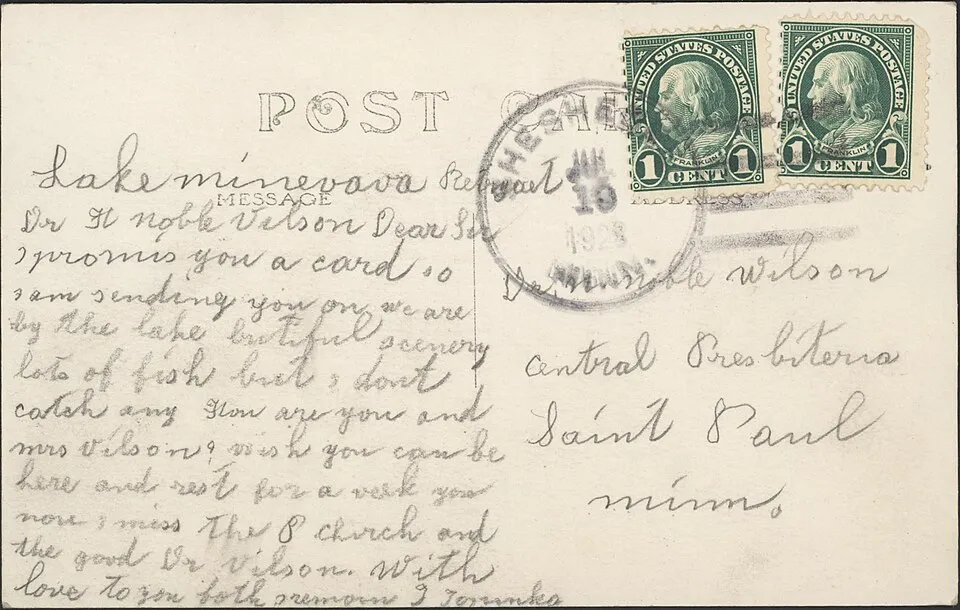 POST
Lake minevava
MESSAGE
Dr H noble Vilson Dear Sir
I promis you a card so
I am sending you on, we are
by the lake butiful scenery
lots of fish but I dont
catch any How are you and
mrs Vilson? wish you can be
here and rest for a week you
now I miss the P church and
the good Dr Vilson. With
love to you both I remain
UNITED STATES POSTAGE
FRANKLIN
1 CENT 1
UNITED STATES POSTAGE
FRANKLIN
1 CENT 1
19
192
MINN.
ADDRESS
Dr. noble Wilson
central Presbiteria
Saint Paul
minn.